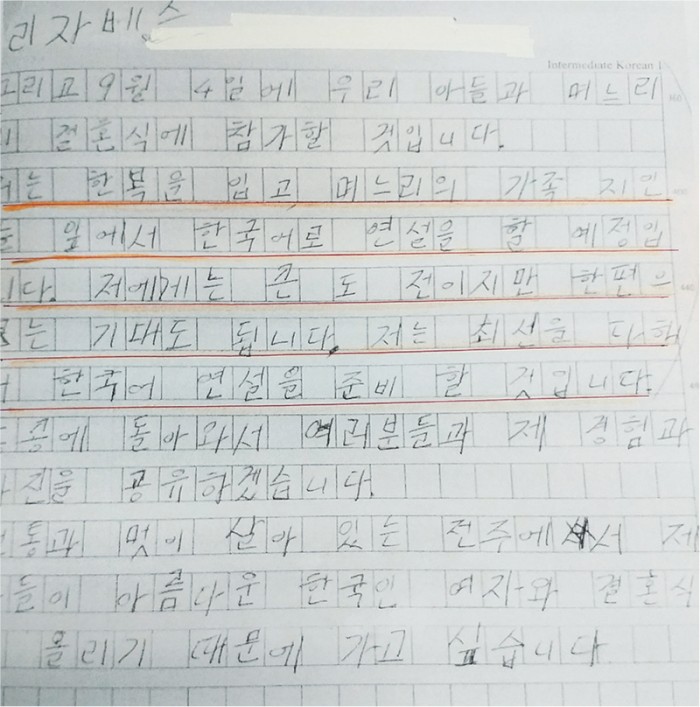 리자베스
Intermediate Korean 1
그리고 9월 4일에 우리 아들과 며느리
의 결혼식에 참가할 것입니다.
저는 한복을 입고 며느리의 가족 지인
들 앞에서 한국어로 연설을 할 예정입
니다. 저에게는 큰 도 전이지만 한편으
로는 기대도 됩니다. 저는 최선을 다해
서 한국어 연설을 준비 할 것입니다.
콩에 돌아와서 여러분들과 제 경험과
사진을 공유하겠습니다.
전통과 멋이 살아 있는 전주에서 제
아들이 아름다운 한국인 여자와 결혼식
올리기 때문에 가고 싶습니다